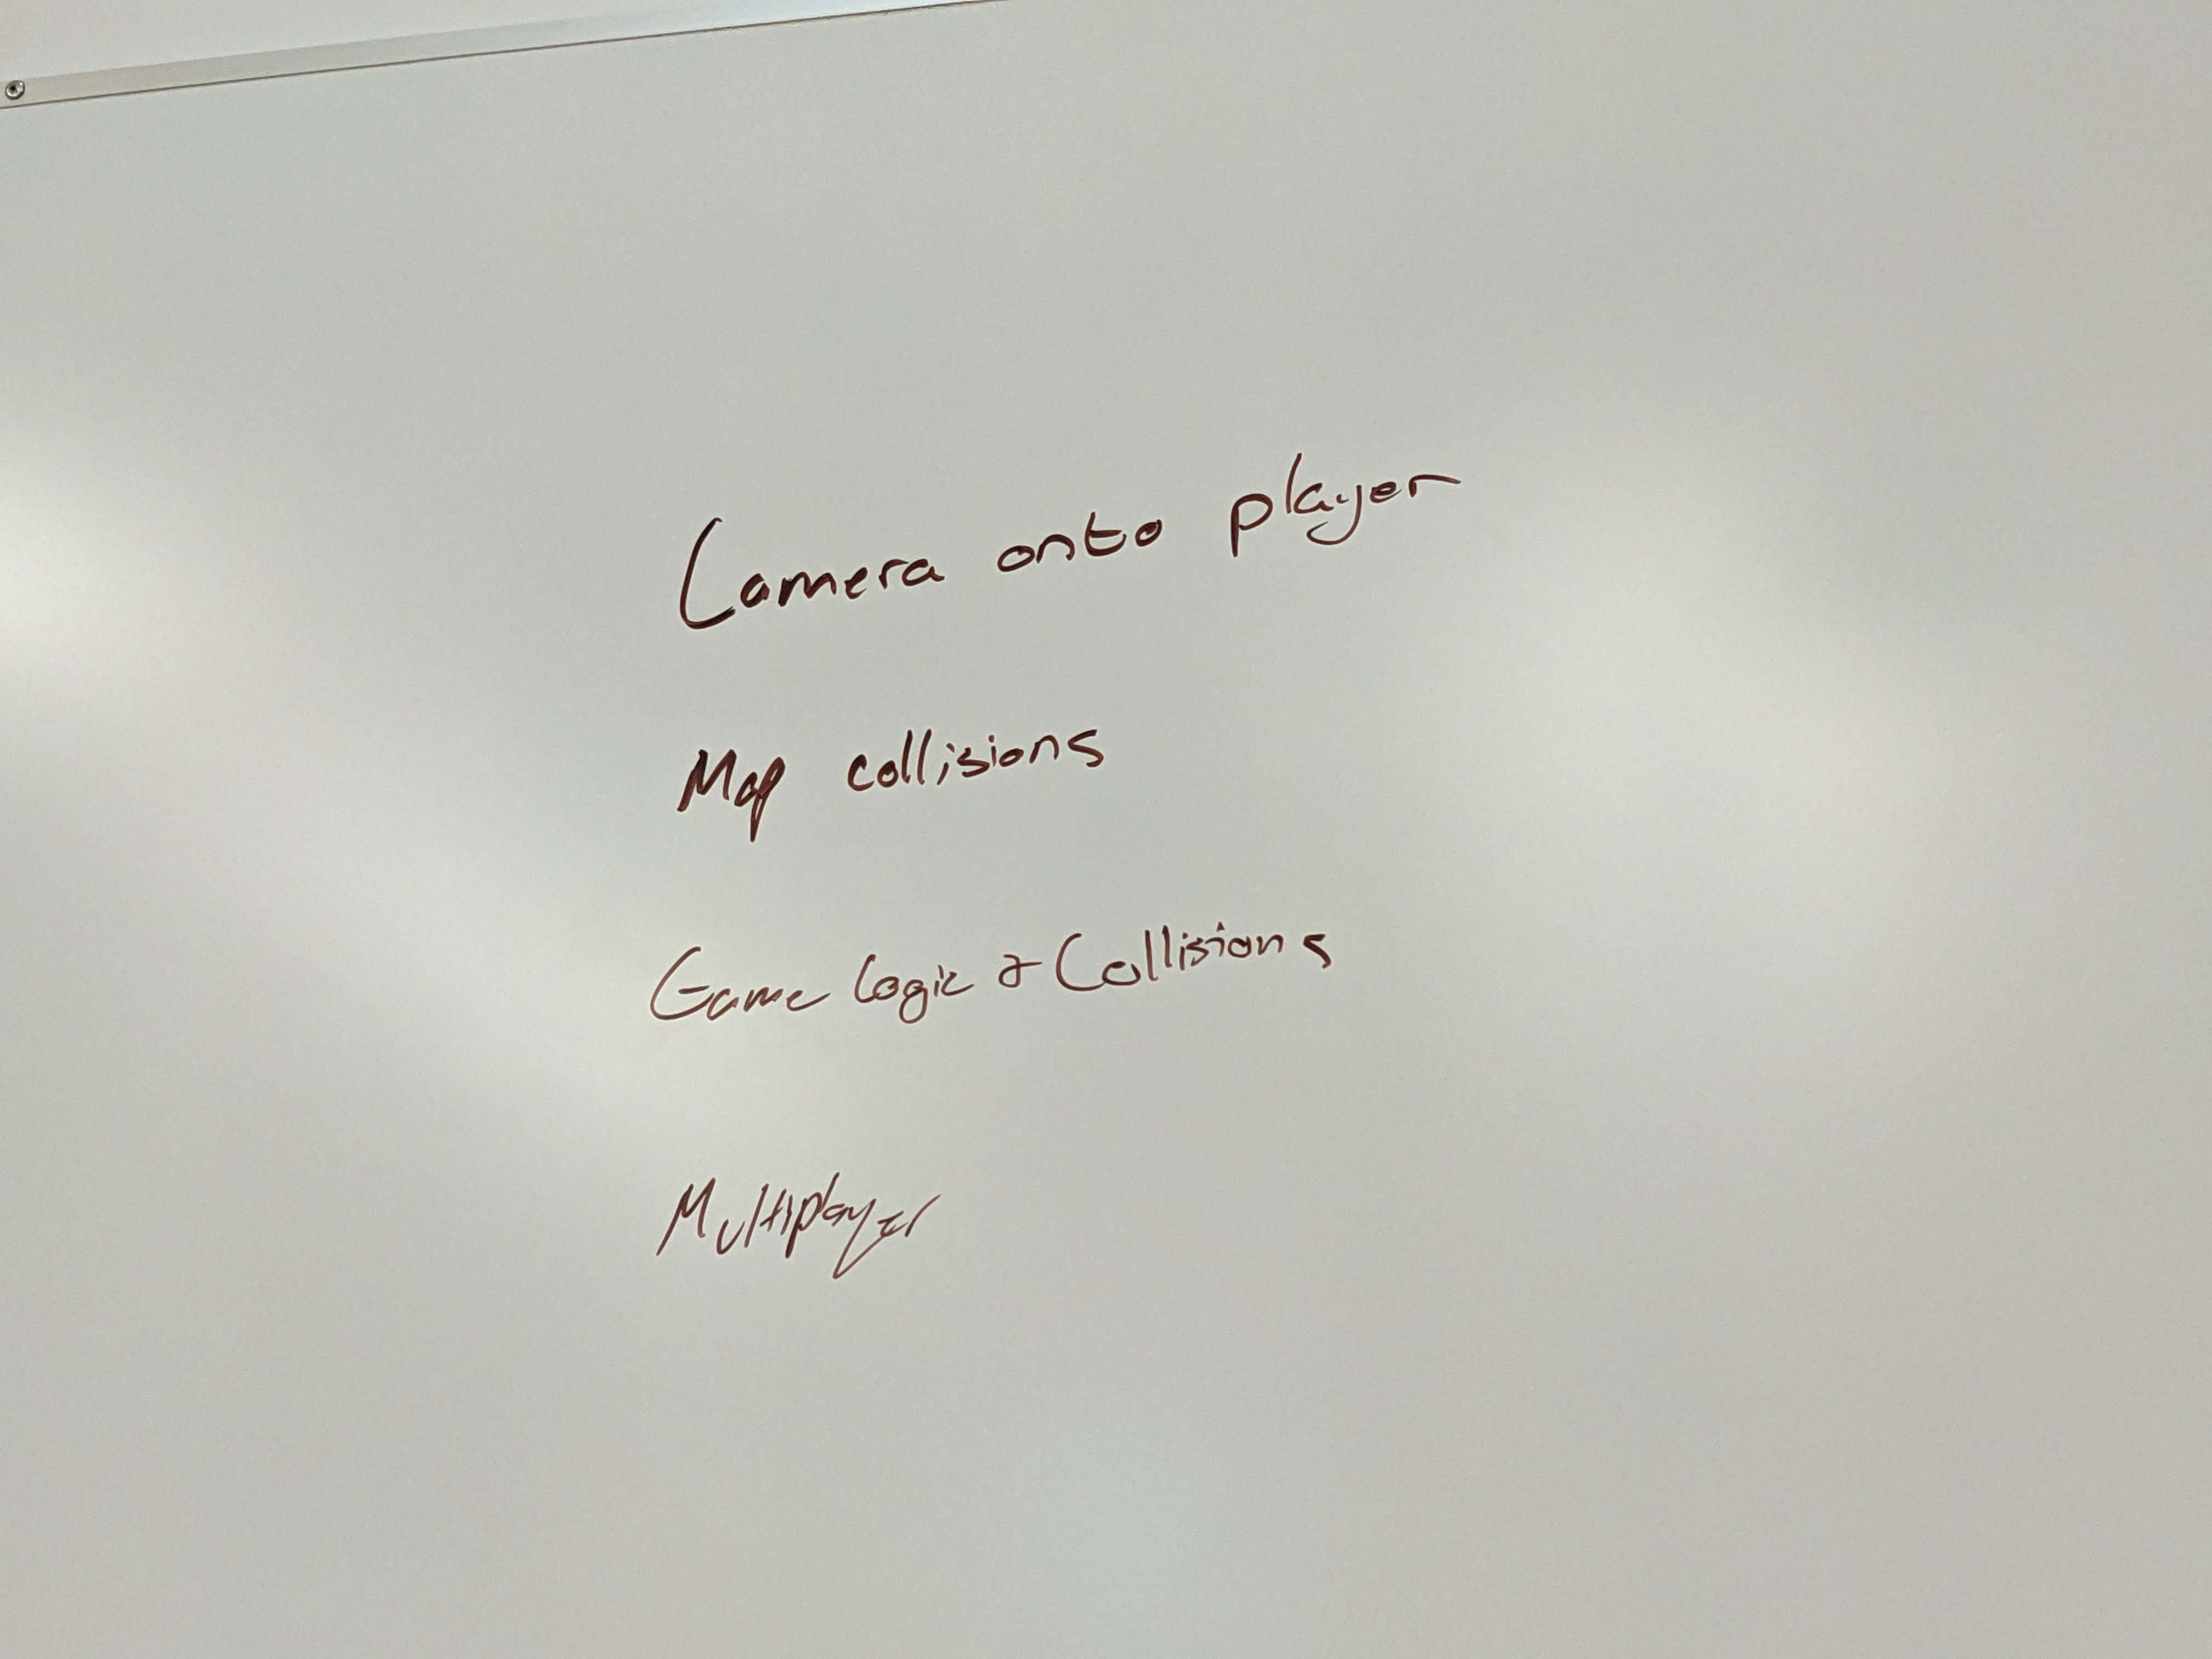 Camera onto player
Map collisions
Game Logic & Collisions
Multiplayer